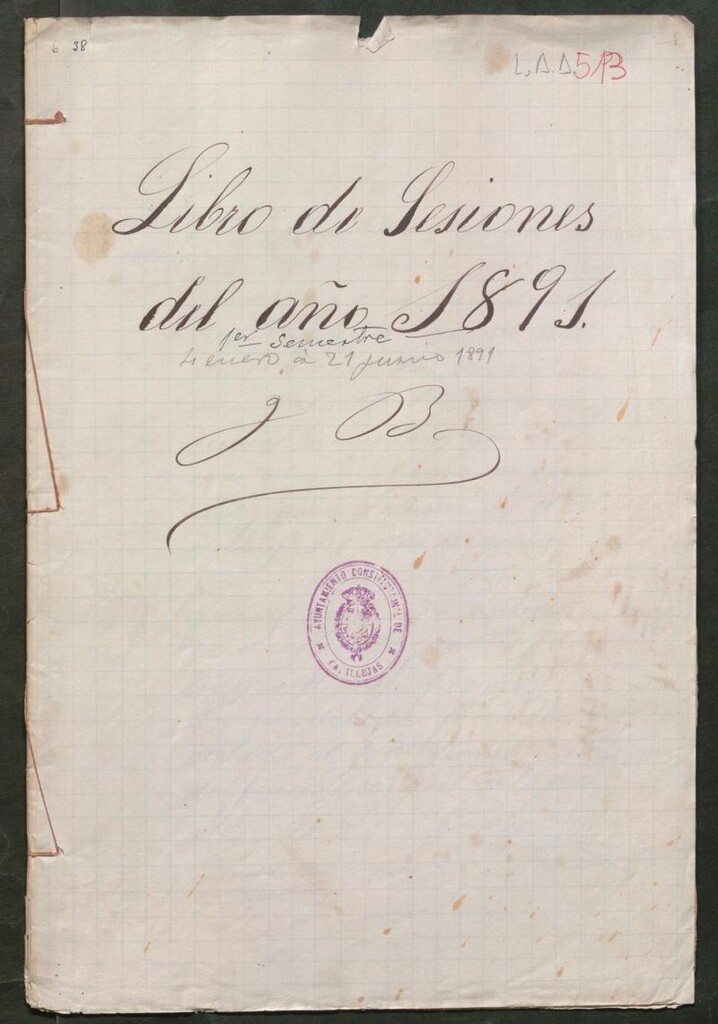 6 38
L.A.A 513
Libro de Sesiones
del año 1891.
1er Semestre
4 enero à 21 junio 1891
J B
AYUNTAMIENTO CONSTITUCIONAL DE
CANILLEJAS